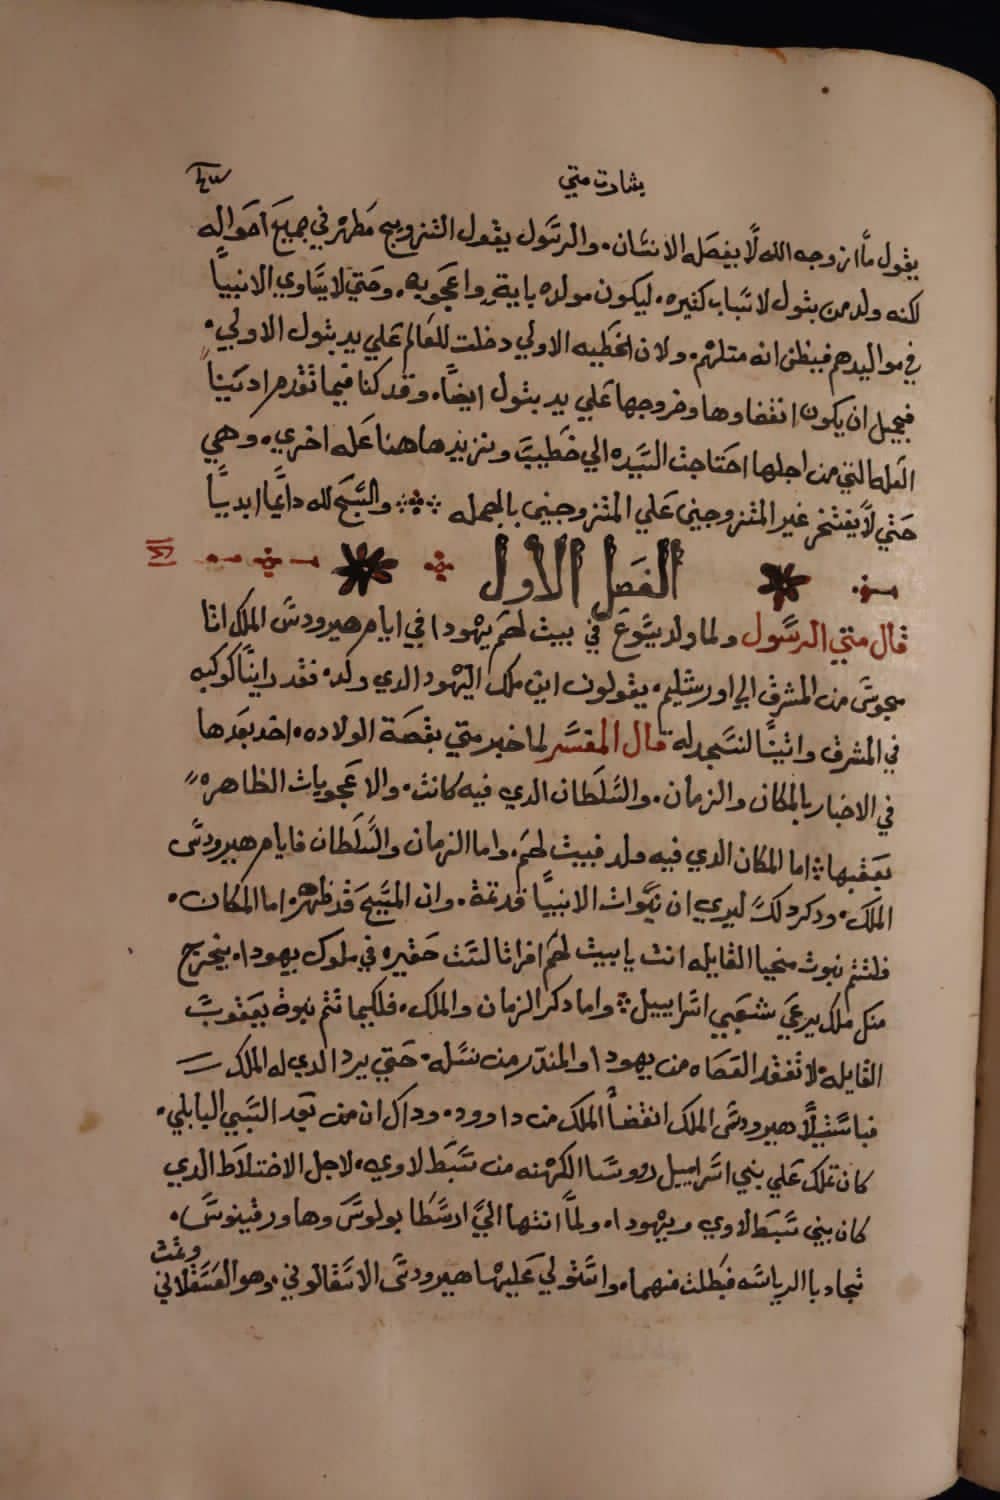 بشارت متي
يقول ما ازوجه الله لا يفصله الانسان. والرسول يقول التزويج مطهر في جميع احواله
لكنه ولد من بتول لاسباب كثيره. ليكون مولده باية واعجوبه. وحتي لا يساوي الانبيا
في مواليدهم فيظن انه متلهم. ولان الخطيه الاولي دخلت للعالم علي يد بتول الاولي.
فيجل ان يكون انقضاوها وخروجها علي يد بتول ايضا. وقد كنا فيما تقدم ادتينا
العله التي من اجلها احتاجت السيده الي خطيب ونزيد هاهنا عله اخري. وهي
حتي لا يفتخر غير المتزوجين علي المتزوجين بالجمله والسبح لله دايما ابديا
الفصل الاول
قال متي الرسول ولما ولد يسوع في بيت لحم يهودا في ايام هيرودس الملك اتا
مجوس من المشرق الي اورشليم. يقولون اين ملك اليهود الدي ولد. فقد راينا كوكبه
في المشرق واتينا لنسجد له قال المفسر لما خبر متي بقصة الولاده. اخد بعدها
في الاخبار بالمكان والزمان. والسلطان الدي فيه كانت. والاعجوبات الظاهره
بعقبها اما المكان الدي فيه ولد فبيت لحم. واما الزمان والسلطان فايام هيرودس
الملك. ودكر دلك ليري ان نبوات الانبيا قد تمة. وان المسيح قد ظهر. اما المكان.
فلتتم نبوت ميخيا القايله انت يا بيت لحم افراتا لست حقيره في ملوك يهودا. يخرج
منك ملك يرعي شعبي اسراييل واما دكر الزمان والملك. فلكيما تتم نبوة يعقوب
القايله لا تفقد العصاه من يهودا والمندر من نسله. حتي يرد الدي له الملك
فباستيلا هيرودس الملك انقضا الملك من داوود. وداك ان من بعد السبي البابلي.
كان تملك علي بني اسراييل روسا الكهنه من سبط لاوي. لاجل الاختلاط الدي
كان بين سبط لاوي ويهودا. ولما انتها الي ارسطا بولوس وهاورقينوس.
تجادبا الرياسه فبطلت منهما. واستولي عليها هيرودس الاسقالوني. وهو العسقلاني
وغت